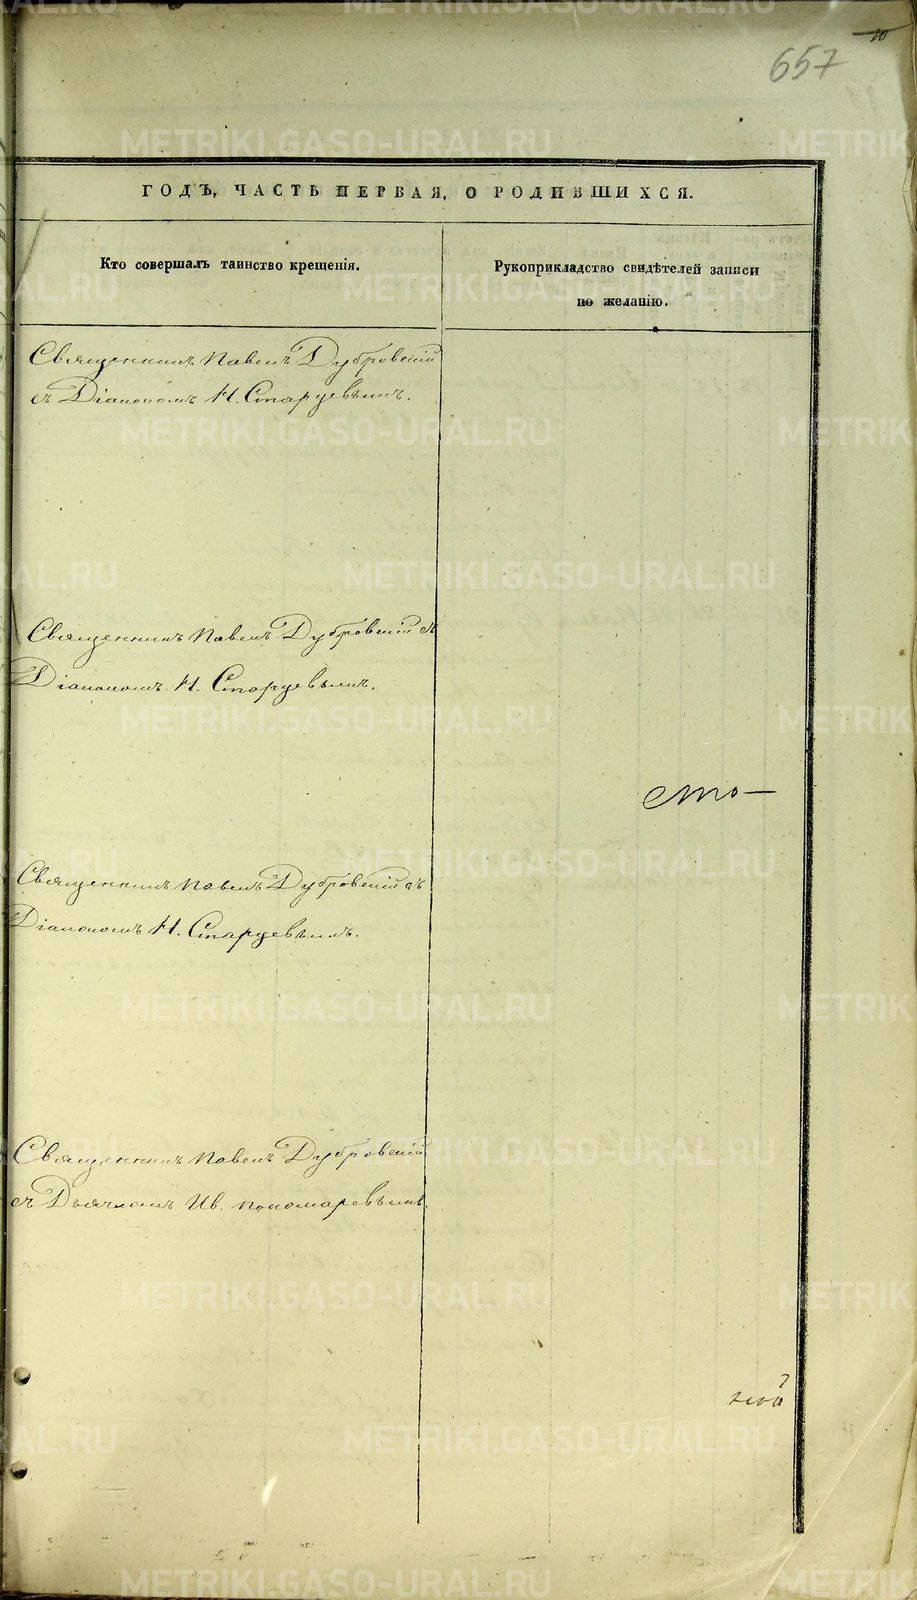 10
657
ГОДЪ, ЧАСТЬ ПЕРВАЯ, О РОДИВШИХСЯ.
Кто совершалъ таинство крещенія.
Рукоприкладство свидѣтелей записи
по желанію.
Священникъ Павелъ Дубровскій
съ Діакономъ Н. Старцевымъ.
Священникъ Павелъ Дубровскій съ
Діакономъ Н. Старцевымъ.
сто
Священникъ Павелъ Дубровскій съ
Діакономъ Н. Старцевымъ.
Священникъ Павелъ Дубровскій
съ Дьячкомъ Ив. Пономаревымъ.
METRIKI.GASO-URAL.RU